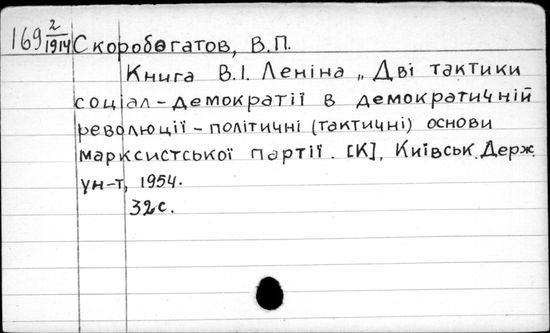 169 2/1914 Скоробогатов, В.П.
Книга В.І. Леніна „Дві тактики
соціал-демократії в демократичній
революції – політичні (тактичні) основи
марксистської партії. [К], Київськ. Держ.
ун-т, 1954.
32с.